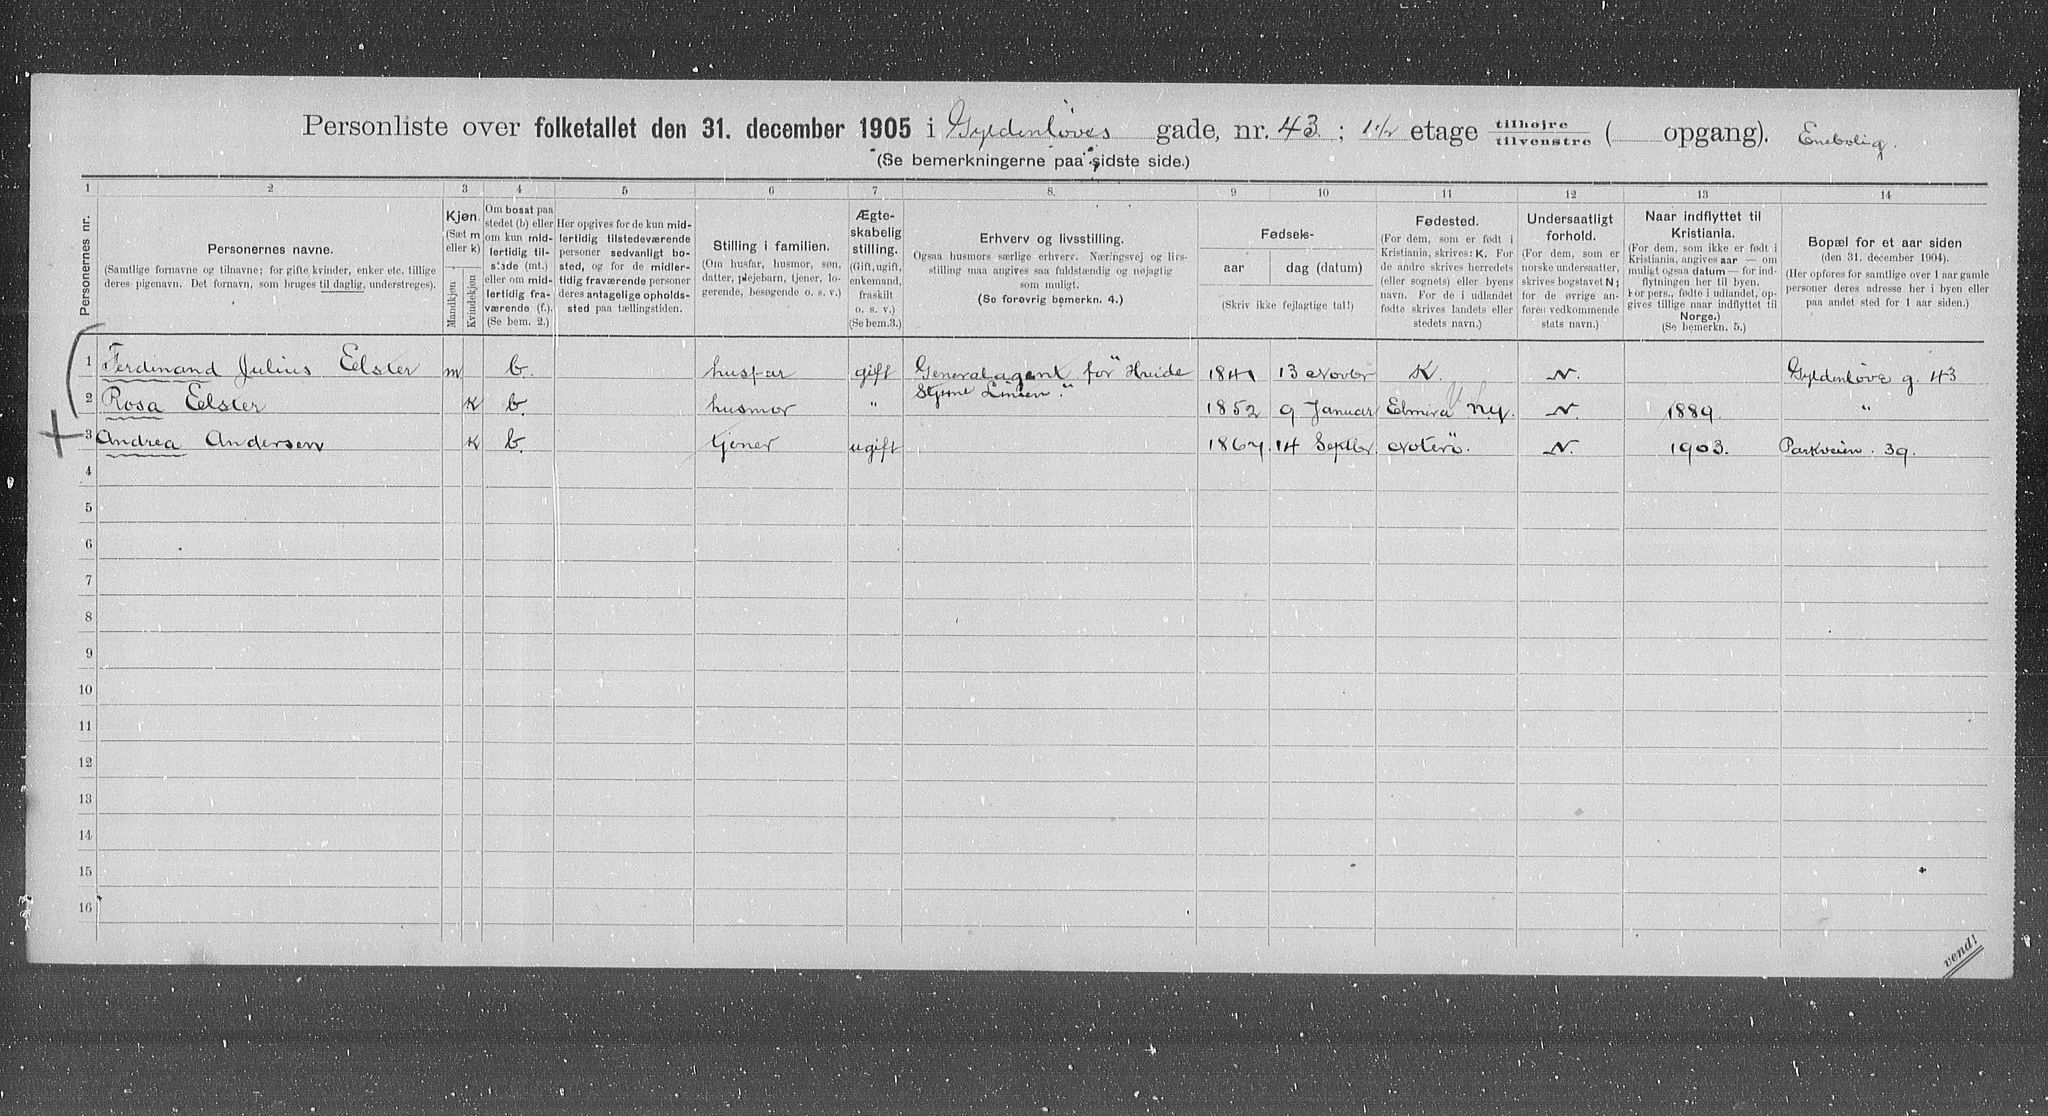 Personliste over folketallet den 31. december 1905 i Gyldenløves gade, nr. 43 ; 1 1/2 etage tilhøjre / tilvenstre ( opgang). Enebolig.
(Se bemerkningerne paa sidste side.)
1 2 3 4 5 6 7 8. 9 10 11 12 13 14
Personernes nr.
Personernes navne.
(Samtlige fornavne og tilnavne; for gifte kvinder, enker etc. tillige
deres pigenavn. Det fornavn, som bruges til daglig, understreges).
Kjøn.
(Sæt m
eller k)
Mandkjøn
Kvindekjøn
Om bosat paa
stedet (b) eller
om kun mid-
lertidig til-
stede (mt.)
eller om mid-
lertidig fra-
værende (f.).
(Se bem. 2.)
Her opgives for de kun mid-
lertidig tilstedeværende
personer sedvanligt bo-
sted, og for de midler-
tidig fraværende personer
deres antagelige opholds-
sted paa tællingstiden.
Stilling i familien.
(Om husfar, husmor, søn,
datter, plejebarn, tjener, lo-
gerende, besøgende o. s. v.)
Ægte-
skabelig
stilling.
(Gift, ugift,
enkemand,
fraskilt
o. s. v.)
(Se bem.3.)
Erhverv og livsstilling.
Ogsaa husmors særlige erhverv. Næringsvej og livs-
stilling maa angives saa fuldstændig og nøjagtig
som muligt.
(Se forøvrig bemerkn. 4.)
Fødsels-
aar
dag (datum)
(Skriv ikke fejlagtige tal!)
Fødested.
(For dem, som er født i
Kristiania, skrives: K. For
de andre skrives herredets
(eller sognets) eller byens
navn. For de i udlandet
fødte skrives landets eller
stedets navn.)
Undersaatligt
forhold.
(For dem, som er
norske undersaatter,
skrives bogstavet N;
for de øvrige an-
føres vedkommende
stats navn.)
Naar indflyttet til
Kristiania.
(For dem, som ikke er født i
Kristiania, angives aar — om
muligt ogsaa datum — for ind-
flytningen her til byen.
For pers., fødte i udlandet, op-
gives tillige naar indflyttet til
Norge.)
(Se bemerkn. 5.)
Bopæl for et aar siden
(den 31. december 1904).
(Her opføres for samtlige over 1 aar gamle
personer deres adresse her i byen eller
paa andet sted for 1 aar siden.)
1 Ferdinand Julius Eelster m b. husfar gift Generalagent for "Hvide 1841 13 Novbr K. N. Gyldenløve g. 43
Stjerne Linien".
2 Rosa Eelster K b. husmor " 1852 9 Januar Elmira N.y. N. 1889. "
3 Andrea Andersen K b. tjener ugift 1867. 14 Septbr. Noterö. N. 1903. Parkveien. 39.
4
5
6
7
8
9
10
11
12
13
14
15
16
vend!